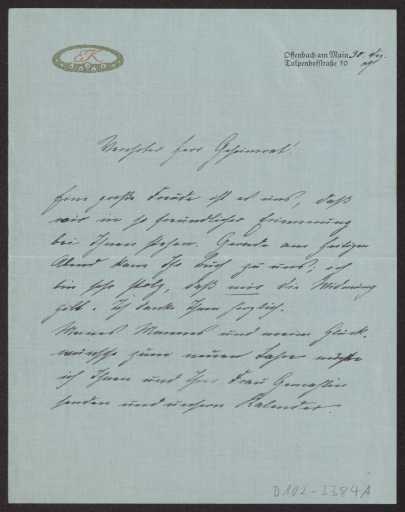 EK
Offenbach am Main 30. Dez.
Tulpenhofstraße 10
Verehrter Herr Geheimrat!
Eine große Freude ist es uns, daß
wir in so freundlicher Erinnerung
bei Ihnen stehen. Gerade am heiligen
Abend kam Ihr Buch zu uns; ich
bin sehr stolz, daß mir die Widmung
gilt. Ich danke Ihnen herzlich.
Meines Mannes und meine Glück-
wünsche zum neuen Jahre möchte
ich Ihnen und Ihrer Frau Gemahlin
senden und unsern Kalender.
D102-3384A